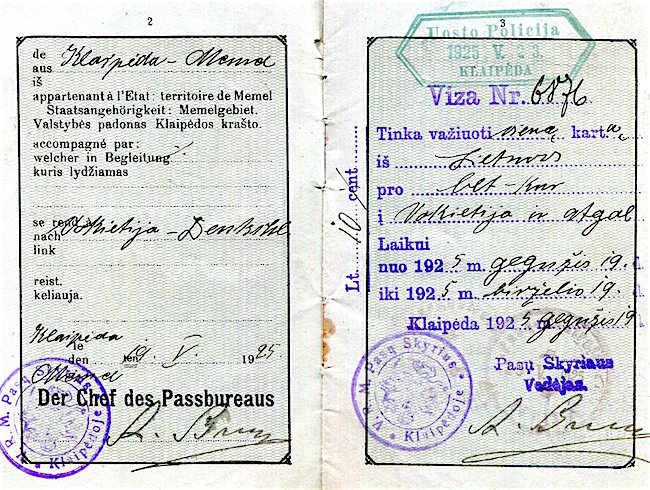 2
de
aus Klaipėda - Memel
iš
appartenant à l'Etat: territoire de Memel
Staatsangehörigkeit: Memelgebiet.
Valstybės padonas Klaipėdos krašto.
accompagné par:
welcher in Begleitung
kuris lydžiamas
se rend à
nach Vokietija -
link
reist.
keliauja.
Klaipėda
den 19. V. 1925
Memel
Der Chef des Passbureaus
V. R. M. Pasų Skyrius
Klaipėdoje
3
Uosto Policija
1925 V. 23.
KLAIPĖDA
Viza Nr. 6876
Tinka važiuoti vieną kartą
iš Lietuvos
pro bet-kur
į Vokietija ir atgal
Laikui
nuo 1925 m. gegužis 19. d.
iki 1925 m. birželio 19. d.
Klaipėda 1925 m. gegužis 19
Lt. 10 cent
Pasų Skyriaus
Vedėjas.
V. R. M. Pasų Skyrius
Klaipėdoje